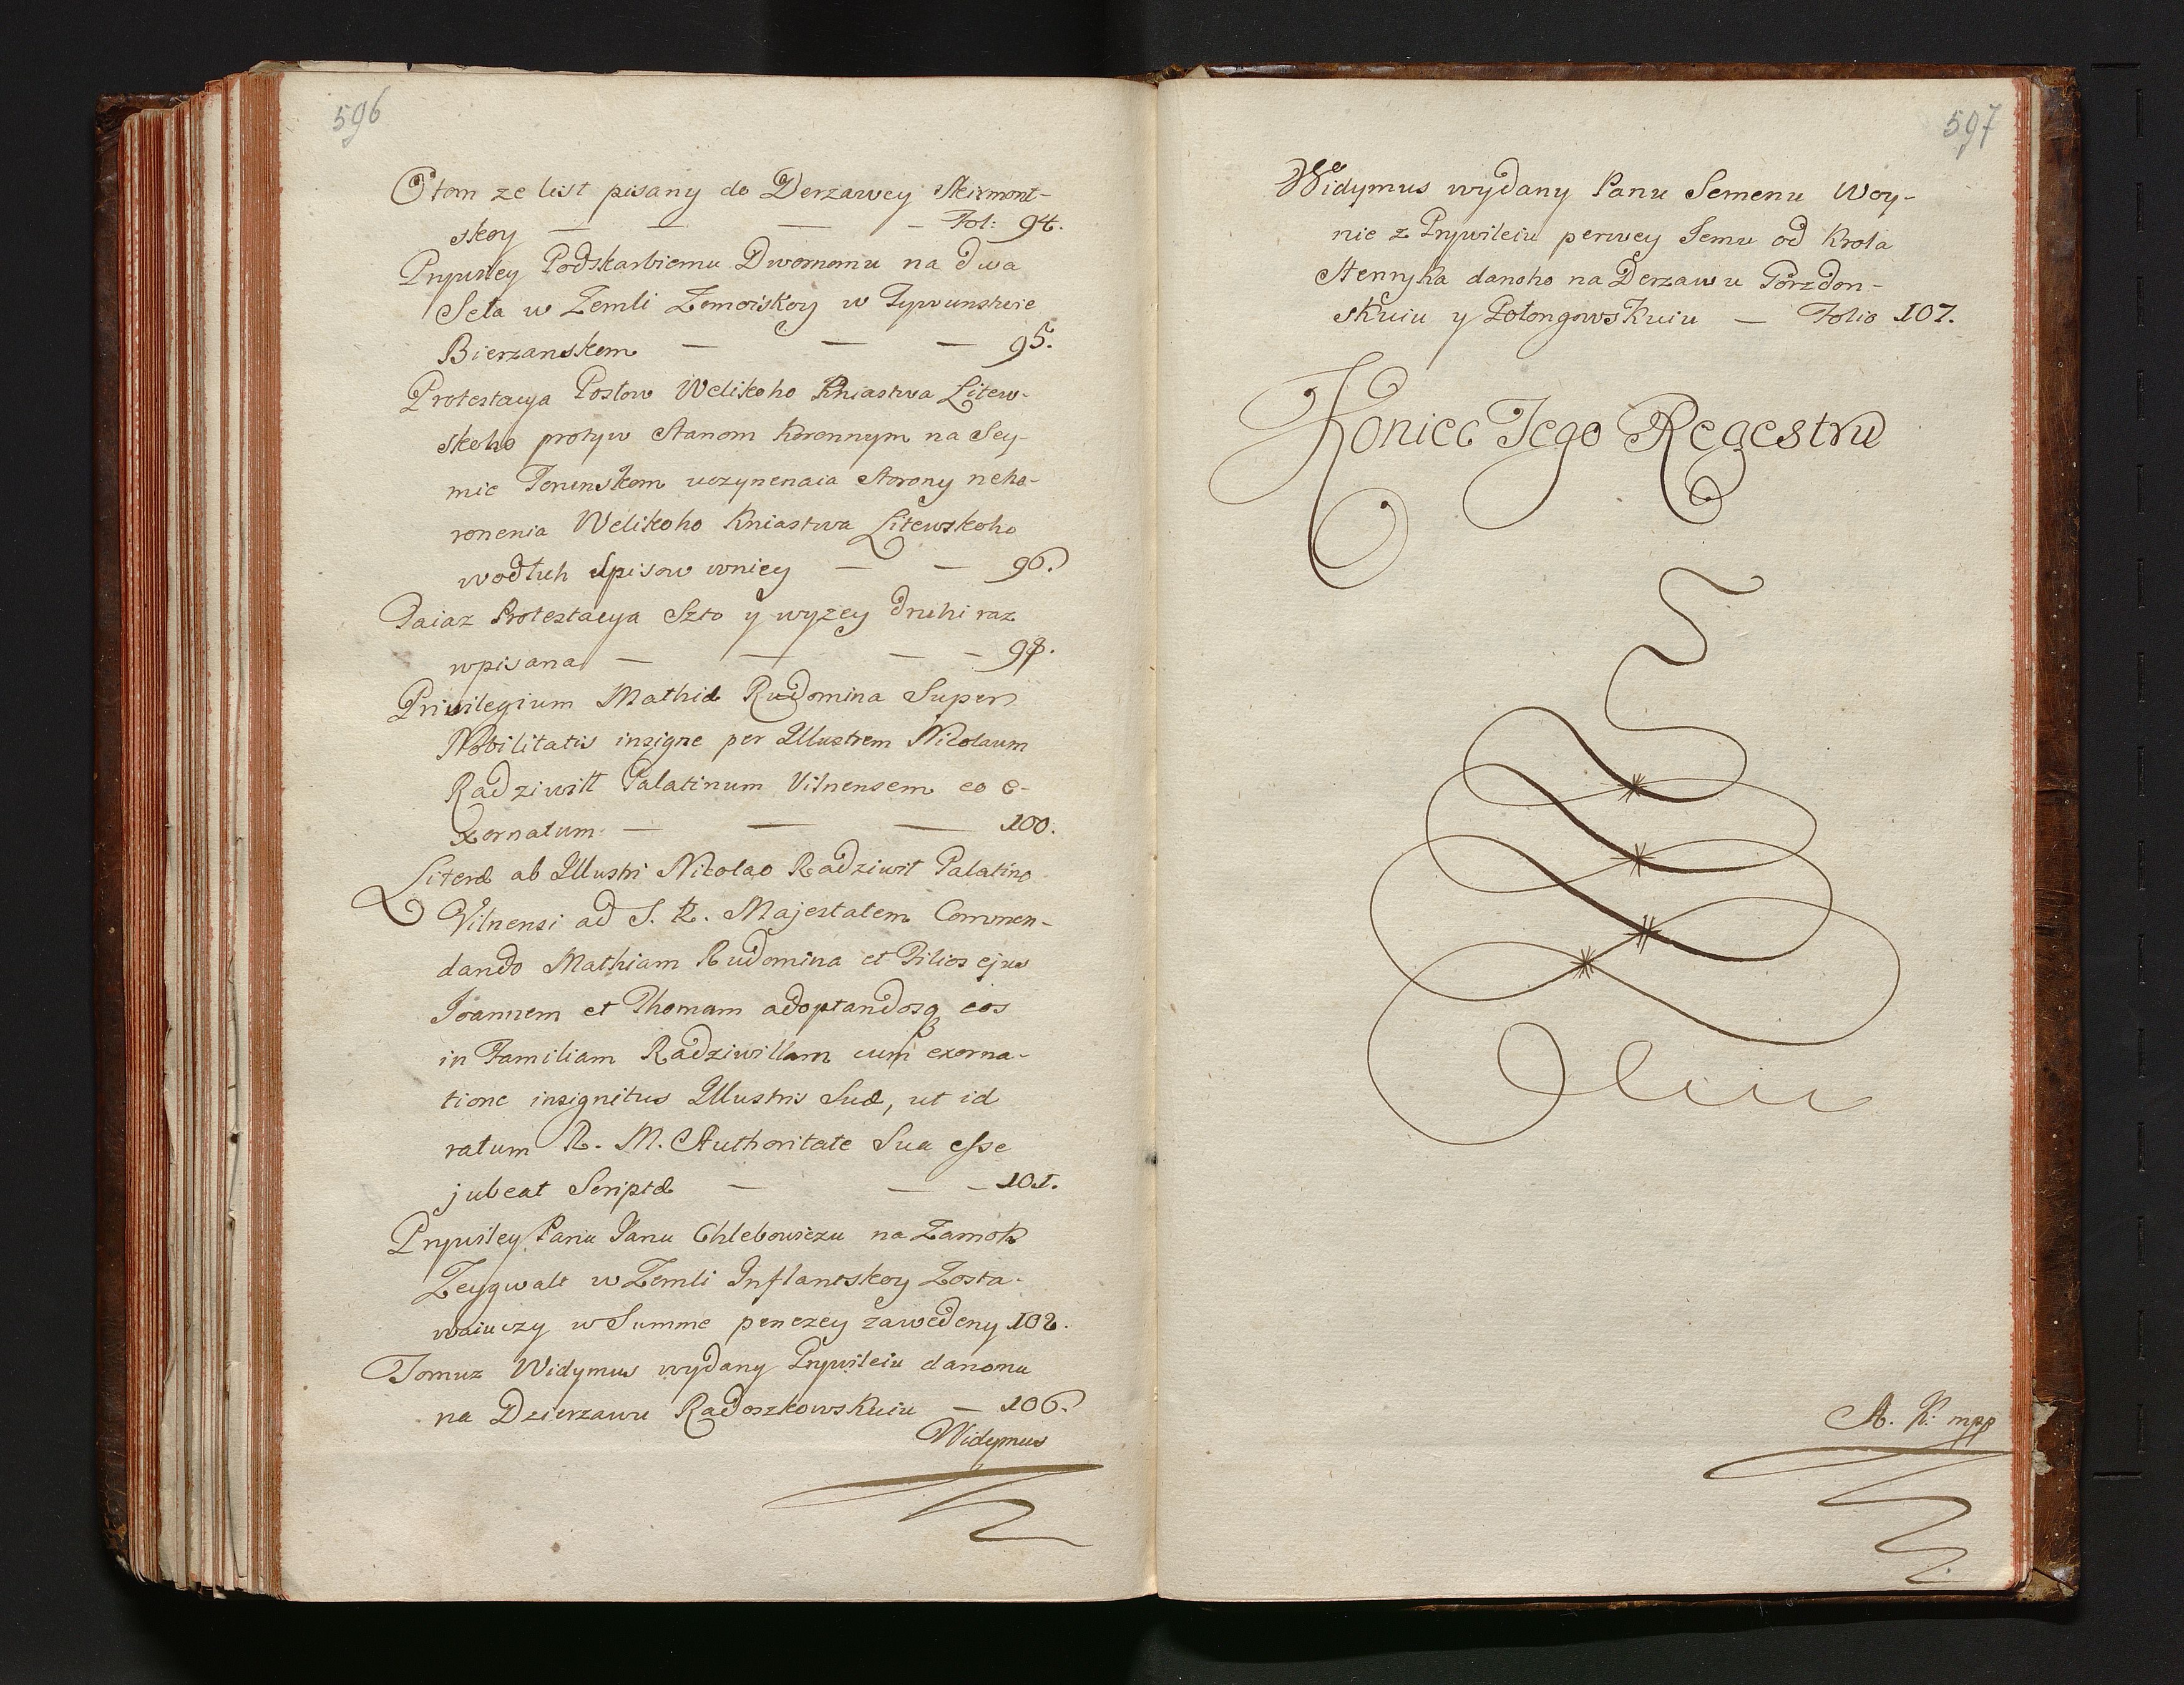 596
O tom ze list pisany do Derzawcy Skirmont-
skoy — — — — Fol: 94.
Prywiley Podskarbiemu Dwornomu na dwa
Seła w Zemli Zomoiskoy w Tywunstwie
Bierzanskom — — — 95.
Protestacya Posłow Welikoho Kniastwa Litew-
skoho protyw Stanom Koronnym na Sey-
mie Torunskom uczynenaia Storony neho-
ronenia Welikoho Kniastwa Litewskoho
wodłuh Spisow wniey — — 96.
Taiaz Protestacya Szto y wyzey druhi raz
wpisana — — — — 98.
Privilegium Mathiæ Rudomina Super
Nobilitatis insigne per Illustrem Nicolaum
Radziwiłł Palatinum Vilnensem eo e-
xornatum — — — 100.
Literæ ab Illustri Nicolao Radziwił Palatino
Vilnensi ad S. R. Majestatem Commen-
dando Mathiam Rudomina et Filios ejus
Joannem et Thomam adoptandosq eos
in Familiam Radziwillam cum exorna-
tione insignitus Illustris Suæ, ut id
ratum R. M. Authoritate Sua esse
jubeat Scriptæ — — — 101.
Prywiley Panu Janu Chlebowiczu na Zamok
Zeygwalt w Zemli Inflantskoy Zosta-
waiuczy w Summe penezey zawedeny 102.
Tomuz Widymus wydany Prywileiu danomu
na Dzierzawu Radoszkowskuiu — 106.
Widymus
597
Widymus wydany Panu Semenu Woy-
nie z Prywileiu perwey Jemu od Krola
Henryka danoho na Derzawu Porzdon-
skuiu y Połongowskuiu — Folio 107.
Koniec Tego Regestru
A. K. mpp